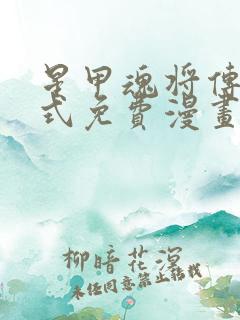 星甲魂将傳
式免費漫畫
柳暗花溟
未经同意禁止转载